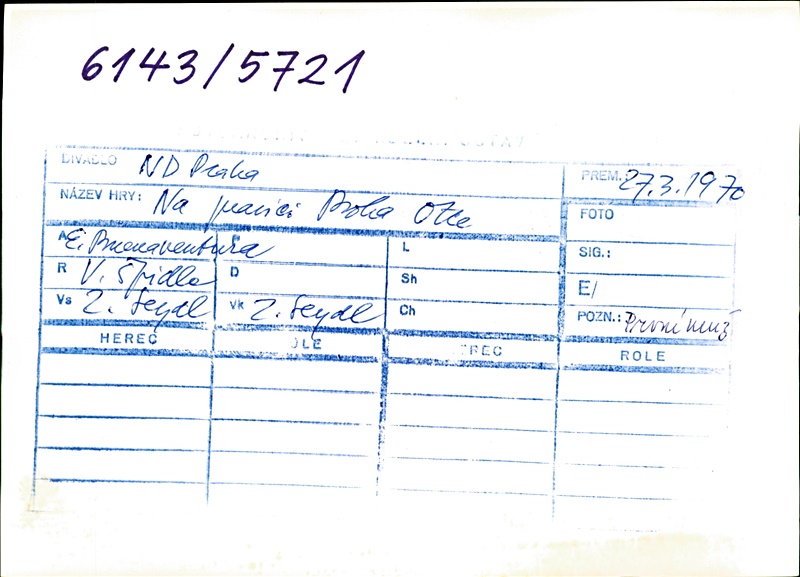 6143/5721
DIVADLO ND Praha
PREM.: 27.3.1970
NÁZEV HRY: Na pravici Boha Otce
FOTO
A E. Buenaventura
L
SIG.:
R V. Špidla
D
Sh
E/
Vs Z. Seydl
Vk Z. Seydl
Ch
POZN.: První muž
HEREC
ROLE